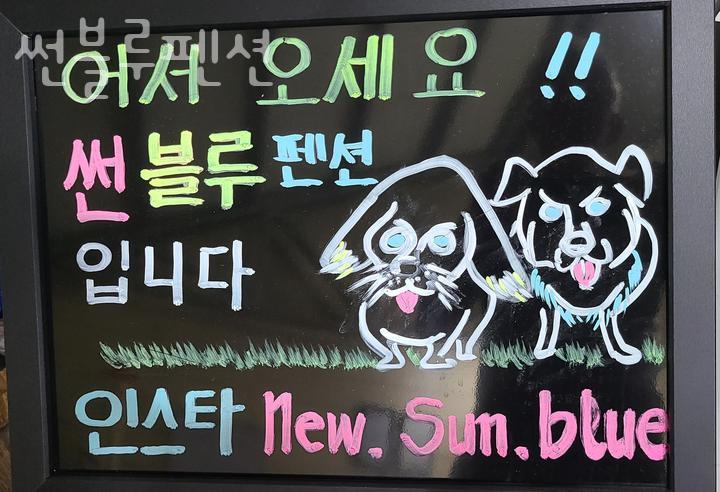 썬블루펜션
어서 오세요 !!
썬블루펜션
입니다
인스타 new. Sun. blue